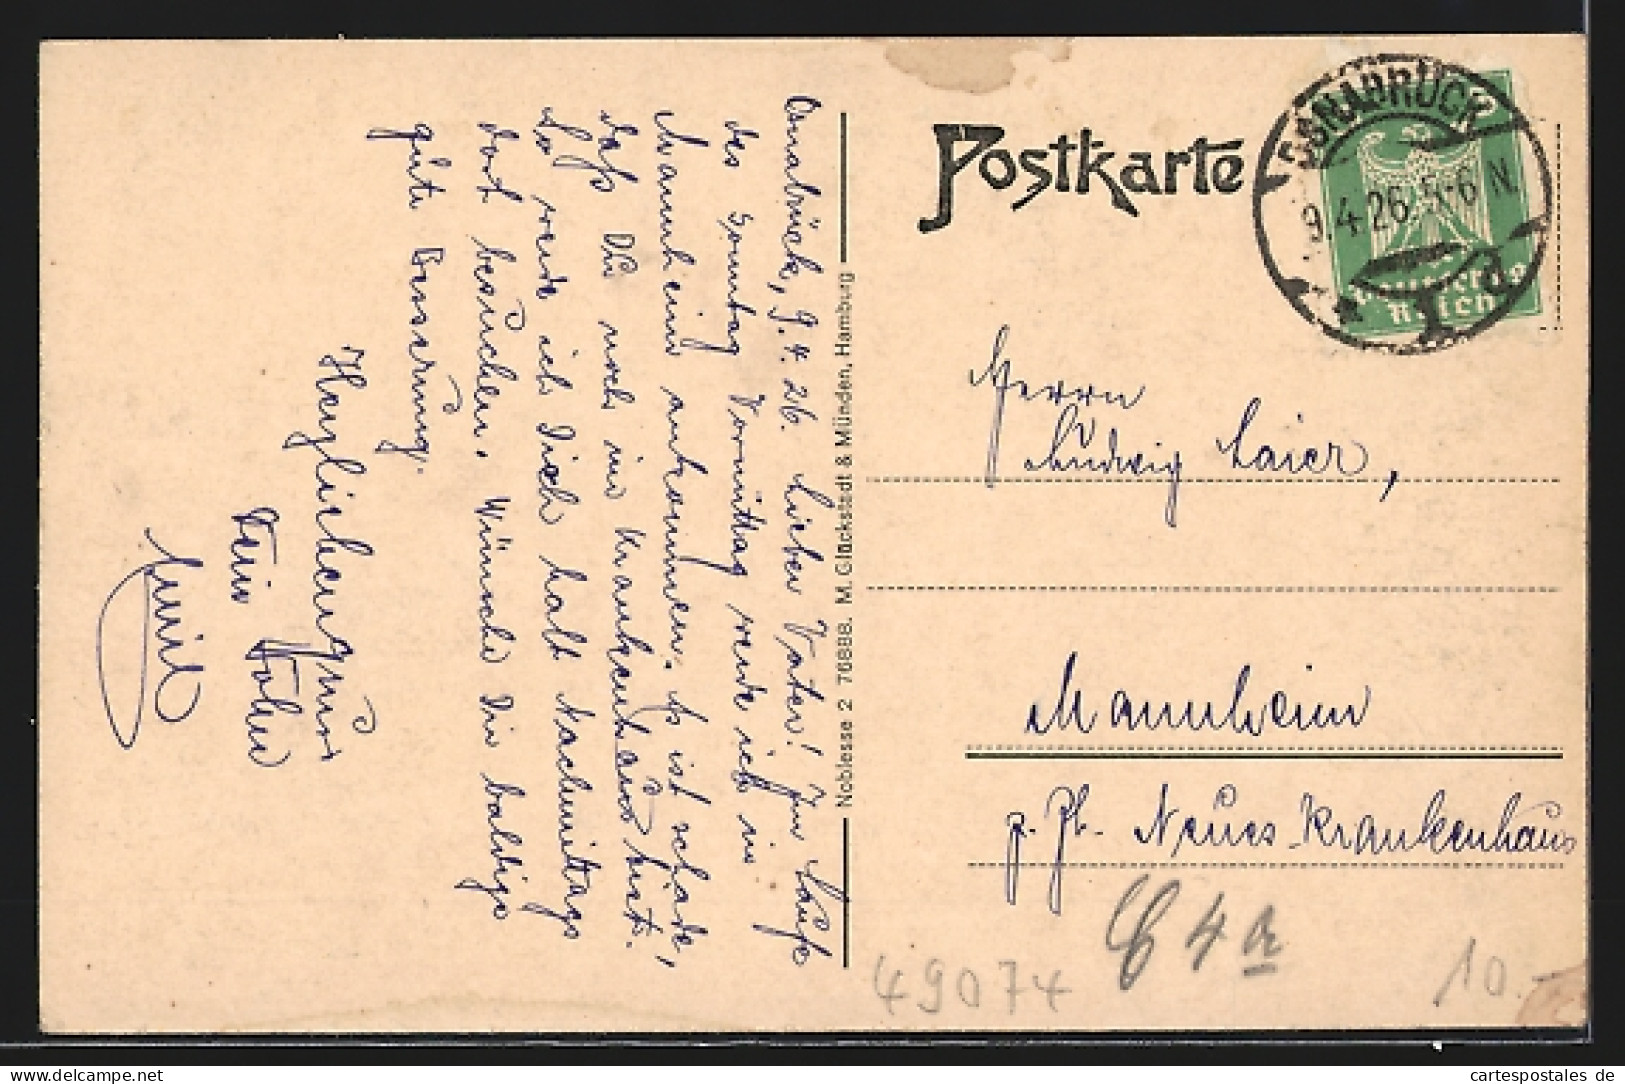 Osnabrück, 9.4.26. Lieber Vater! Im Laufe
des Sonntag Vormittag werde ich in
Mannheim ankommen. Es ist schade,
daß Du noch im Krankenhaus bist.
So werde ich Dich halt Nachmittags
dort besuchen. Wünsche Dir baldige
gute Besserung.
Herzlichen Gruss
Dein Sohn
Emil
Noblesse 2 76888. M. Glückstadt & Münden, Hamburg
Postkarte
OSNABRÜCK
9.4.26.5-6 N.
Deutsches
Reich
Herrn
Ludwig Laier,
Mannheim
z. Zt. Neues Krankenhaus
C 4 a
49074
10.-
cartespostales de
www.delcampe.net